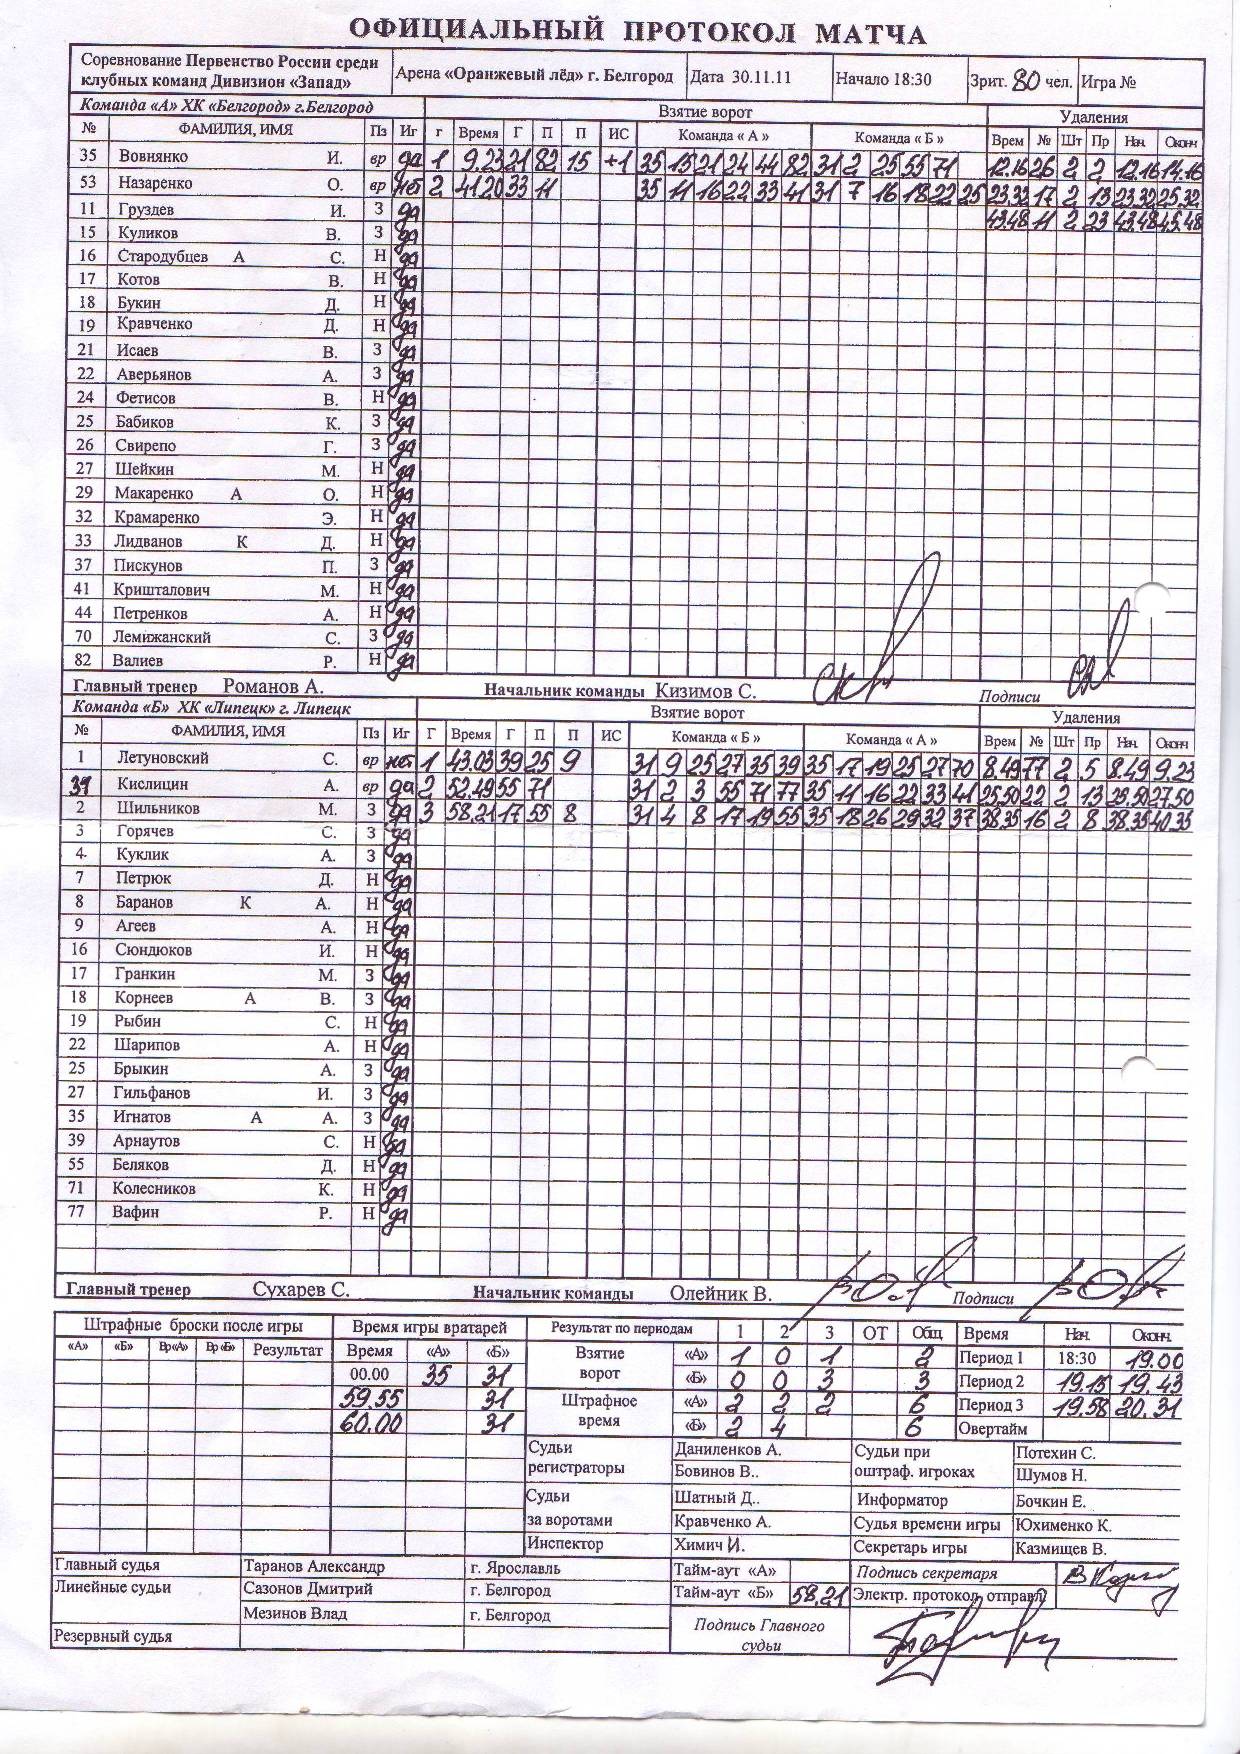 ОФИЦИАЛЬНЫЙ ПРОТОКОЛ МАТЧА
Соревнование Первенство России среди клубных команд Дивизион «Запад» Арена «Оранжевый лёд» г. Белгород Дата 30.11.11 Начало 18:30 Зрит. 80 чел. Игра №
Команда «А» ХК «Белгород» г.Белгород Взятие ворот Удаления
№ ФАМИЛИЯ, ИМЯ Пз Иг г Время Г П П ИС Команда « А » Команда « Б » Врем № Шт Пр Нач. Оконч
35 Вовнянко И. вр да 1 9.23 21 82 15 +1 35 15 21 24 44 82 31 2 25 55 71 12.16 26 2 2 12.16 14.16
53 Назаренко О. вр нет 2 41.20 33 11 35 11 16 22 33 41 31 7 16 18 22 25 23.32 17 2 13 23.32 25.32
11 Груздев И. З да 43.48 11 2 23 43.48 45.48
15 Куликов В. З да
16 Стародубцев А С. Н да
17 Котов В. Н да
18 Букин Д. Н да
19 Кравченко Д. Н да
21 Исаев В. З да
22 Аверьянов А. З да
24 Фетисов В. Н да
25 Бабиков К. З да
26 Свирепо Г. З да
27 Шейкин М. Н да
29 Макаренко А О. Н да
32 Крамаренко Э. Н да
33 Лидванов К Д. Н да
37 Пискунов П. З да
41 Кришталович М. Н да
44 Петренков А. Н да
70 Лемижанский С. З да
82 Валиев Р. Н да
Главный тренер Романов А. Начальник команды Кизимов С. Подписи
Команда «Б» ХК «Липецк» г. Липецк Взятие ворот Удаления
№ ФАМИЛИЯ, ИМЯ Пз Иг Г Время Г П П ИС Команда « Б » Команда « А » Врем № Шт Пр Нач. Оконч
1 Летуновский С. вр нет 1 43.03 39 25 9 31 9 25 27 35 39 35 17 19 25 27 70 8.49 77 2 5 8.49 9.23
31 Кислицин А. вр да 2 52.49 55 71 31 2 3 55 71 77 35 11 16 22 33 41 25.50 22 2 13 25.50 27.50
2 Шильников М. З да 3 58.21 17 55 8 31 4 8 17 19 55 35 18 26 29 32 37 38.35 16 2 8 38.35 40.35
3 Горячев С. З да
4 Куклик А. З да
7 Петрюк Д. Н да
8 Баранов К А. Н да
9 Агеев А. Н да
16 Сюндюков И. Н да
17 Гранкин М. З да
18 Корнеев А В. З да
19 Рыбин С. Н да
22 Шарипов А. Н да
25 Брыкин А. З да
27 Гильфанов И. З да
35 Игнатов А А. З да
39 Арнаутов С. Н да
55 Беляков Д. Н да
71 Колесников К. Н да
77 Вафин Р. Н да
Главный тренер Сухарев С. Начальник команды Олейник В. Подписи
Штрафные броски после игры Время игры вратарей Результат по периодам 1 2 3 ОТ Общ Время Нач. Оконч.
«А» «Б» Вр«А» Вр«Б» Результат Время «А» «Б» Взятие ворот «А» 1 0 1 2 Период 1 18:30 19.00
00.00 35 31 «Б» 0 0 3 3 Период 2 19.15 19.43
59.55 31 Штрафное время «А» 2 2 2 6 Период 3 19.58 20.31
60.00 31 «Б» 2 4 6 Овертайм
Судьи регистраторы Даниленков А. Судьи при оштраф. игроках Потехин С.
Бовинов В.. Шумов Н.
Судьи за воротами Шатный Д.. Информатор Бочкин Е.
Кравченко А. Судья времени игры Юхименко К.
Инспектор Химич И. Секретарь игры Казмищев В.
Главный судья Таранов Александр г. Ярославль Тайм-аут «А» Подпись секретаря
Линейные судьи Сазонов Дмитрий г. Белгород Тайм-аут «Б» 58.21 Электр. протокол отправл.
Мезинов Влад г. Белгород Подпись Главного судьи
Резервный судья